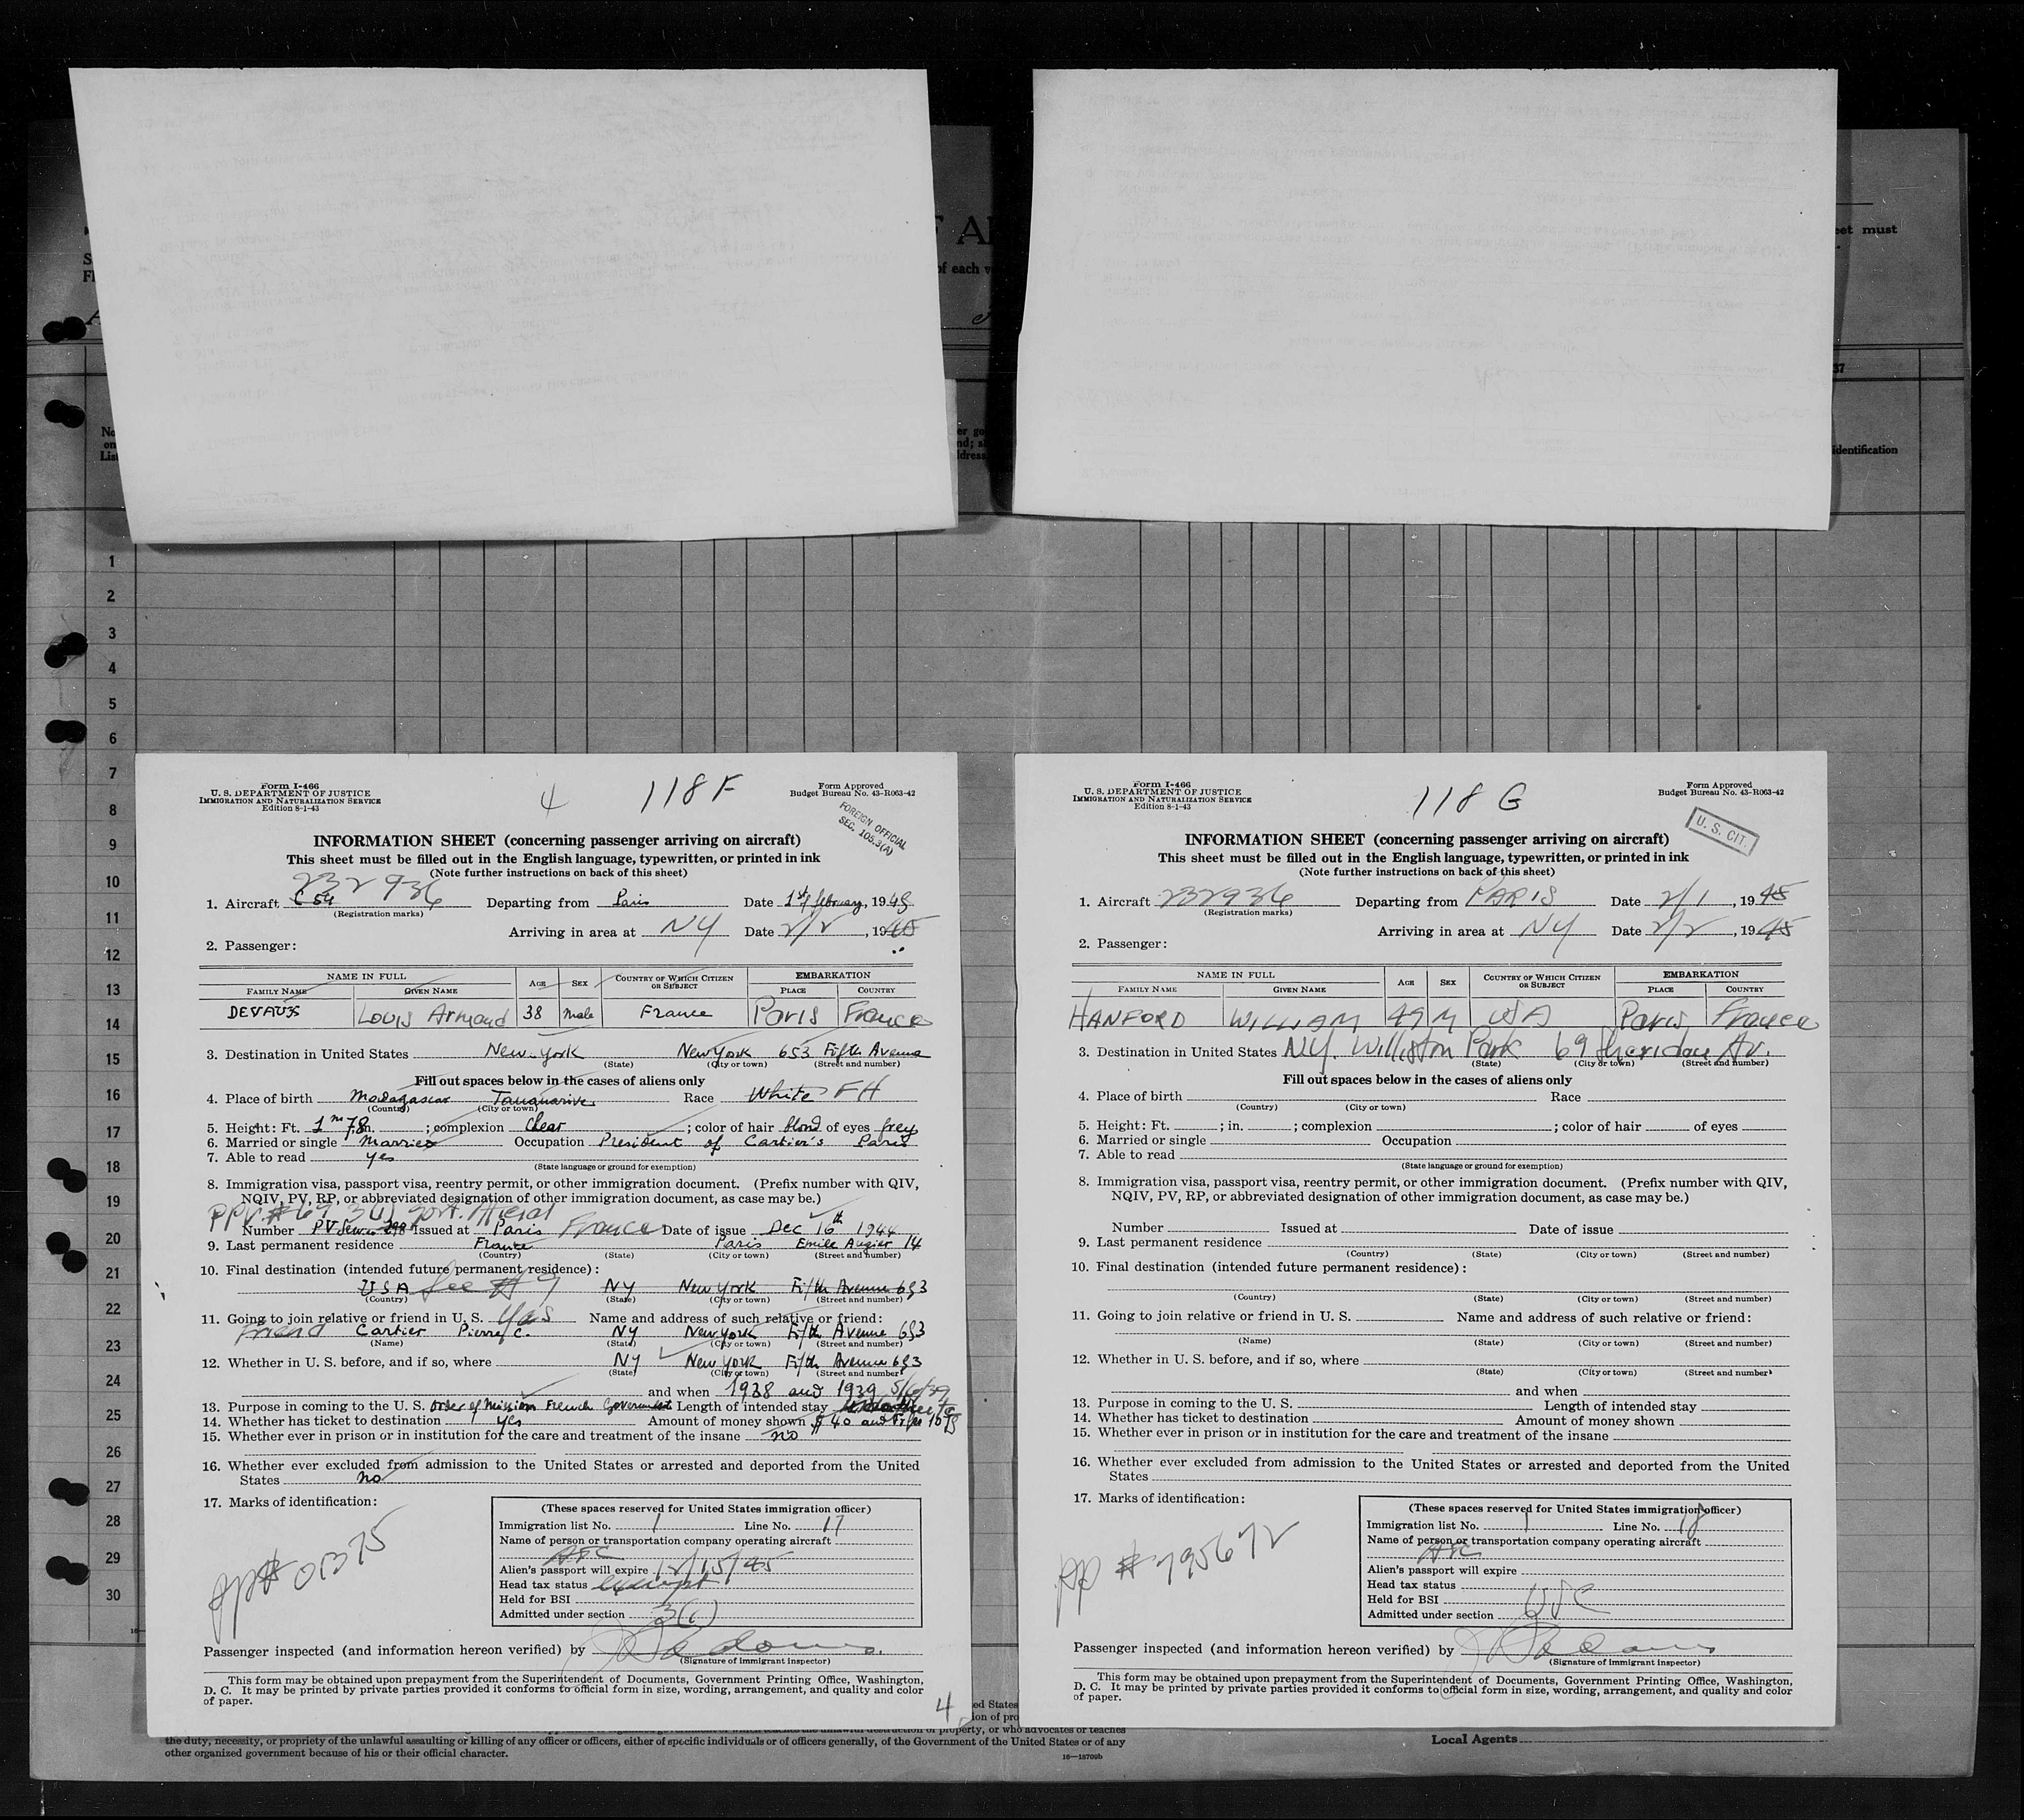 F AI
eet must
of each v
37
identification
1
2
3
4
5
6
7
8
9
10
11
12
13
14
15
16
17
18
19
20
21
22
23
24
25
26
27
28
29
30
Form I-466
U. S. DEPARTMENT OF JUSTICE
IMMIGRATION AND NATURALIZATION SERVICE
Edition 8-1-43
4
118 F
Form Approved
Budget Bureau No. 43-R063-42
FOREIGN OFFICIAL
SEC. 105.3(A)
INFORMATION SHEET (concerning passenger arriving on aircraft)
This sheet must be filled out in the English language, typewritten, or printed in ink
(Note further instructions on back of this sheet)
232936
1. Aircraft C 54 Departing from Paris Date 1st february, 1945
(Registration marks)
Arriving in area at NY Date 2/2, 1945
2. Passenger:
NAME IN FULL AGE SEX COUNTRY OF WHICH CITIZEN OR SUBJECT EMBARKATION
FAMILY NAME GIVEN NAME PLACE COUNTRY
DEVAUX Louis Armand 38 male France Paris France
3. Destination in United States New-York New York 653 Fifth Avenue
(State) (City or town) (Street and number)
Fill out spaces below in the cases of aliens only
4. Place of birth Madagascar Tananarive Race White FH
(Country) (City or town)
5. Height: Ft. 1m78 in. ; complexion Clear ; color of hair blond of eyes grey
6. Married or single Married Occupation President of Cartier's Paris
7. Able to read yes
(State language or ground for exemption)
8. Immigration visa, passport visa, reentry permit, or other immigration document. (Prefix number with QIV,
NQIV, PV, RP, or abbreviated designation of other immigration document, as case may be.)
PPV # 67 3(1) govt.
Number PV 298 Issued at Paris France Date of issue Dec 16th 1944
9. Last permanent residence France Paris Emile Augier 14
(Country) (State) (City or town) (Street and number)
10. Final destination (intended future permanent residence):
USA See # 9 NY New York Fifth Avenue 653
(Country) (State) (City or town) (Street and number)
11. Going to join relative or friend in U. S. Yes Name and address of such relative or friend:
friend Cartier Pierre C. NY New York Fifth Avenue 653
(Name) (State) (City or town) (Street and number)
12. Whether in U. S. before, and if so, where NY New York Fifth Avenue 653
(State) (City or town) (Street and number)
and when 1938 and 1939
13. Purpose in coming to the U. S. Order of Mission French Government Length of intended stay
14. Whether has ticket to destination yes Amount of money shown $ 40 and
15. Whether ever in prison or in institution for the care and treatment of the insane no
16. Whether ever excluded from admission to the United States or arrested and deported from the United
States no
17. Marks of identification:
pp# 01375
(These spaces reserved for United States immigration officer)
Immigration list No. 1 Line No. 17
Name of person or transportation company operating aircraft
ATC
Alien's passport will expire 12/15/45
Head tax status exempt
Held for BSI
Admitted under section 3(1)
Passenger inspected (and information hereon verified) by
(Signature of immigrant inspector)
This form may be obtained upon prepayment from the Superintendent of Documents, Government Printing Office, Washington,
D. C. It may be printed by private parties provided it conforms to official form in size, wording, arrangement, and quality and color
of paper.
4
Form I-466
U. S. DEPARTMENT OF JUSTICE
IMMIGRATION AND NATURALIZATION SERVICE
Edition 8-1-43
118 G
Form Approved
Budget Bureau No. 43-R063-42
U. S. CIT.
INFORMATION SHEET (concerning passenger arriving on aircraft)
This sheet must be filled out in the English language, typewritten, or printed in ink
(Note further instructions on back of this sheet)
1. Aircraft 232936 Departing from PARIS Date 2/1, 1945
(Registration marks)
Arriving in area at NY Date 2/2, 1945
2. Passenger:
NAME IN FULL AGE SEX COUNTRY OF WHICH CITIZEN OR SUBJECT EMBARKATION
FAMILY NAME GIVEN NAME PLACE COUNTRY
HANFORD WILLIAM 49 M USA Paris France
3. Destination in United States N.Y. Williston Park 69 Sheridan Av.
(State) (City or town) (Street and number)
Fill out spaces below in the cases of aliens only
4. Place of birth Race
(Country) (City or town)
5. Height: Ft. ; in. ; complexion ; color of hair of eyes
6. Married or single Occupation
7. Able to read
(State language or ground for exemption)
8. Immigration visa, passport visa, reentry permit, or other immigration document. (Prefix number with QIV,
NQIV, PV, RP, or abbreviated designation of other immigration document, as case may be.)
Number Issued at Date of issue
9. Last permanent residence
(Country) (State) (City or town) (Street and number)
10. Final destination (intended future permanent residence):
(Country) (State) (City or town) (Street and number)
11. Going to join relative or friend in U. S. Name and address of such relative or friend:
(Name) (State) (City or town) (Street and number)
12. Whether in U. S. before, and if so, where
(State) (City or town) (Street and number)
and when
13. Purpose in coming to the U. S. Length of intended stay
14. Whether has ticket to destination Amount of money shown
15. Whether ever in prison or in institution for the care and treatment of the insane
16. Whether ever excluded from admission to the United States or arrested and deported from the United
States
17. Marks of identification:
pp # 795672
(These spaces reserved for United States immigration officer)
Immigration list No. 1 Line No. 18
Name of person or transportation company operating aircraft
ATC
Alien's passport will expire
Head tax status
Held for BSI
Admitted under section USC
Passenger inspected (and information hereon verified) by
(Signature of immigrant inspector)
This form may be obtained upon prepayment from the Superintendent of Documents, Government Printing Office, Washington,
D. C. It may be printed by private parties provided it conforms to official form in size, wording, arrangement, and quality and color
of paper.
ed States
ion of pro
property, or who advocates or teaches
the duty, necessity, or propriety of the unlawful assaulting or killing of any officer or officers, either of specific individuals or of officers generally, of the Government of the United States or of any
other organized government because of his or their official character.
16—18709b
Local Agents